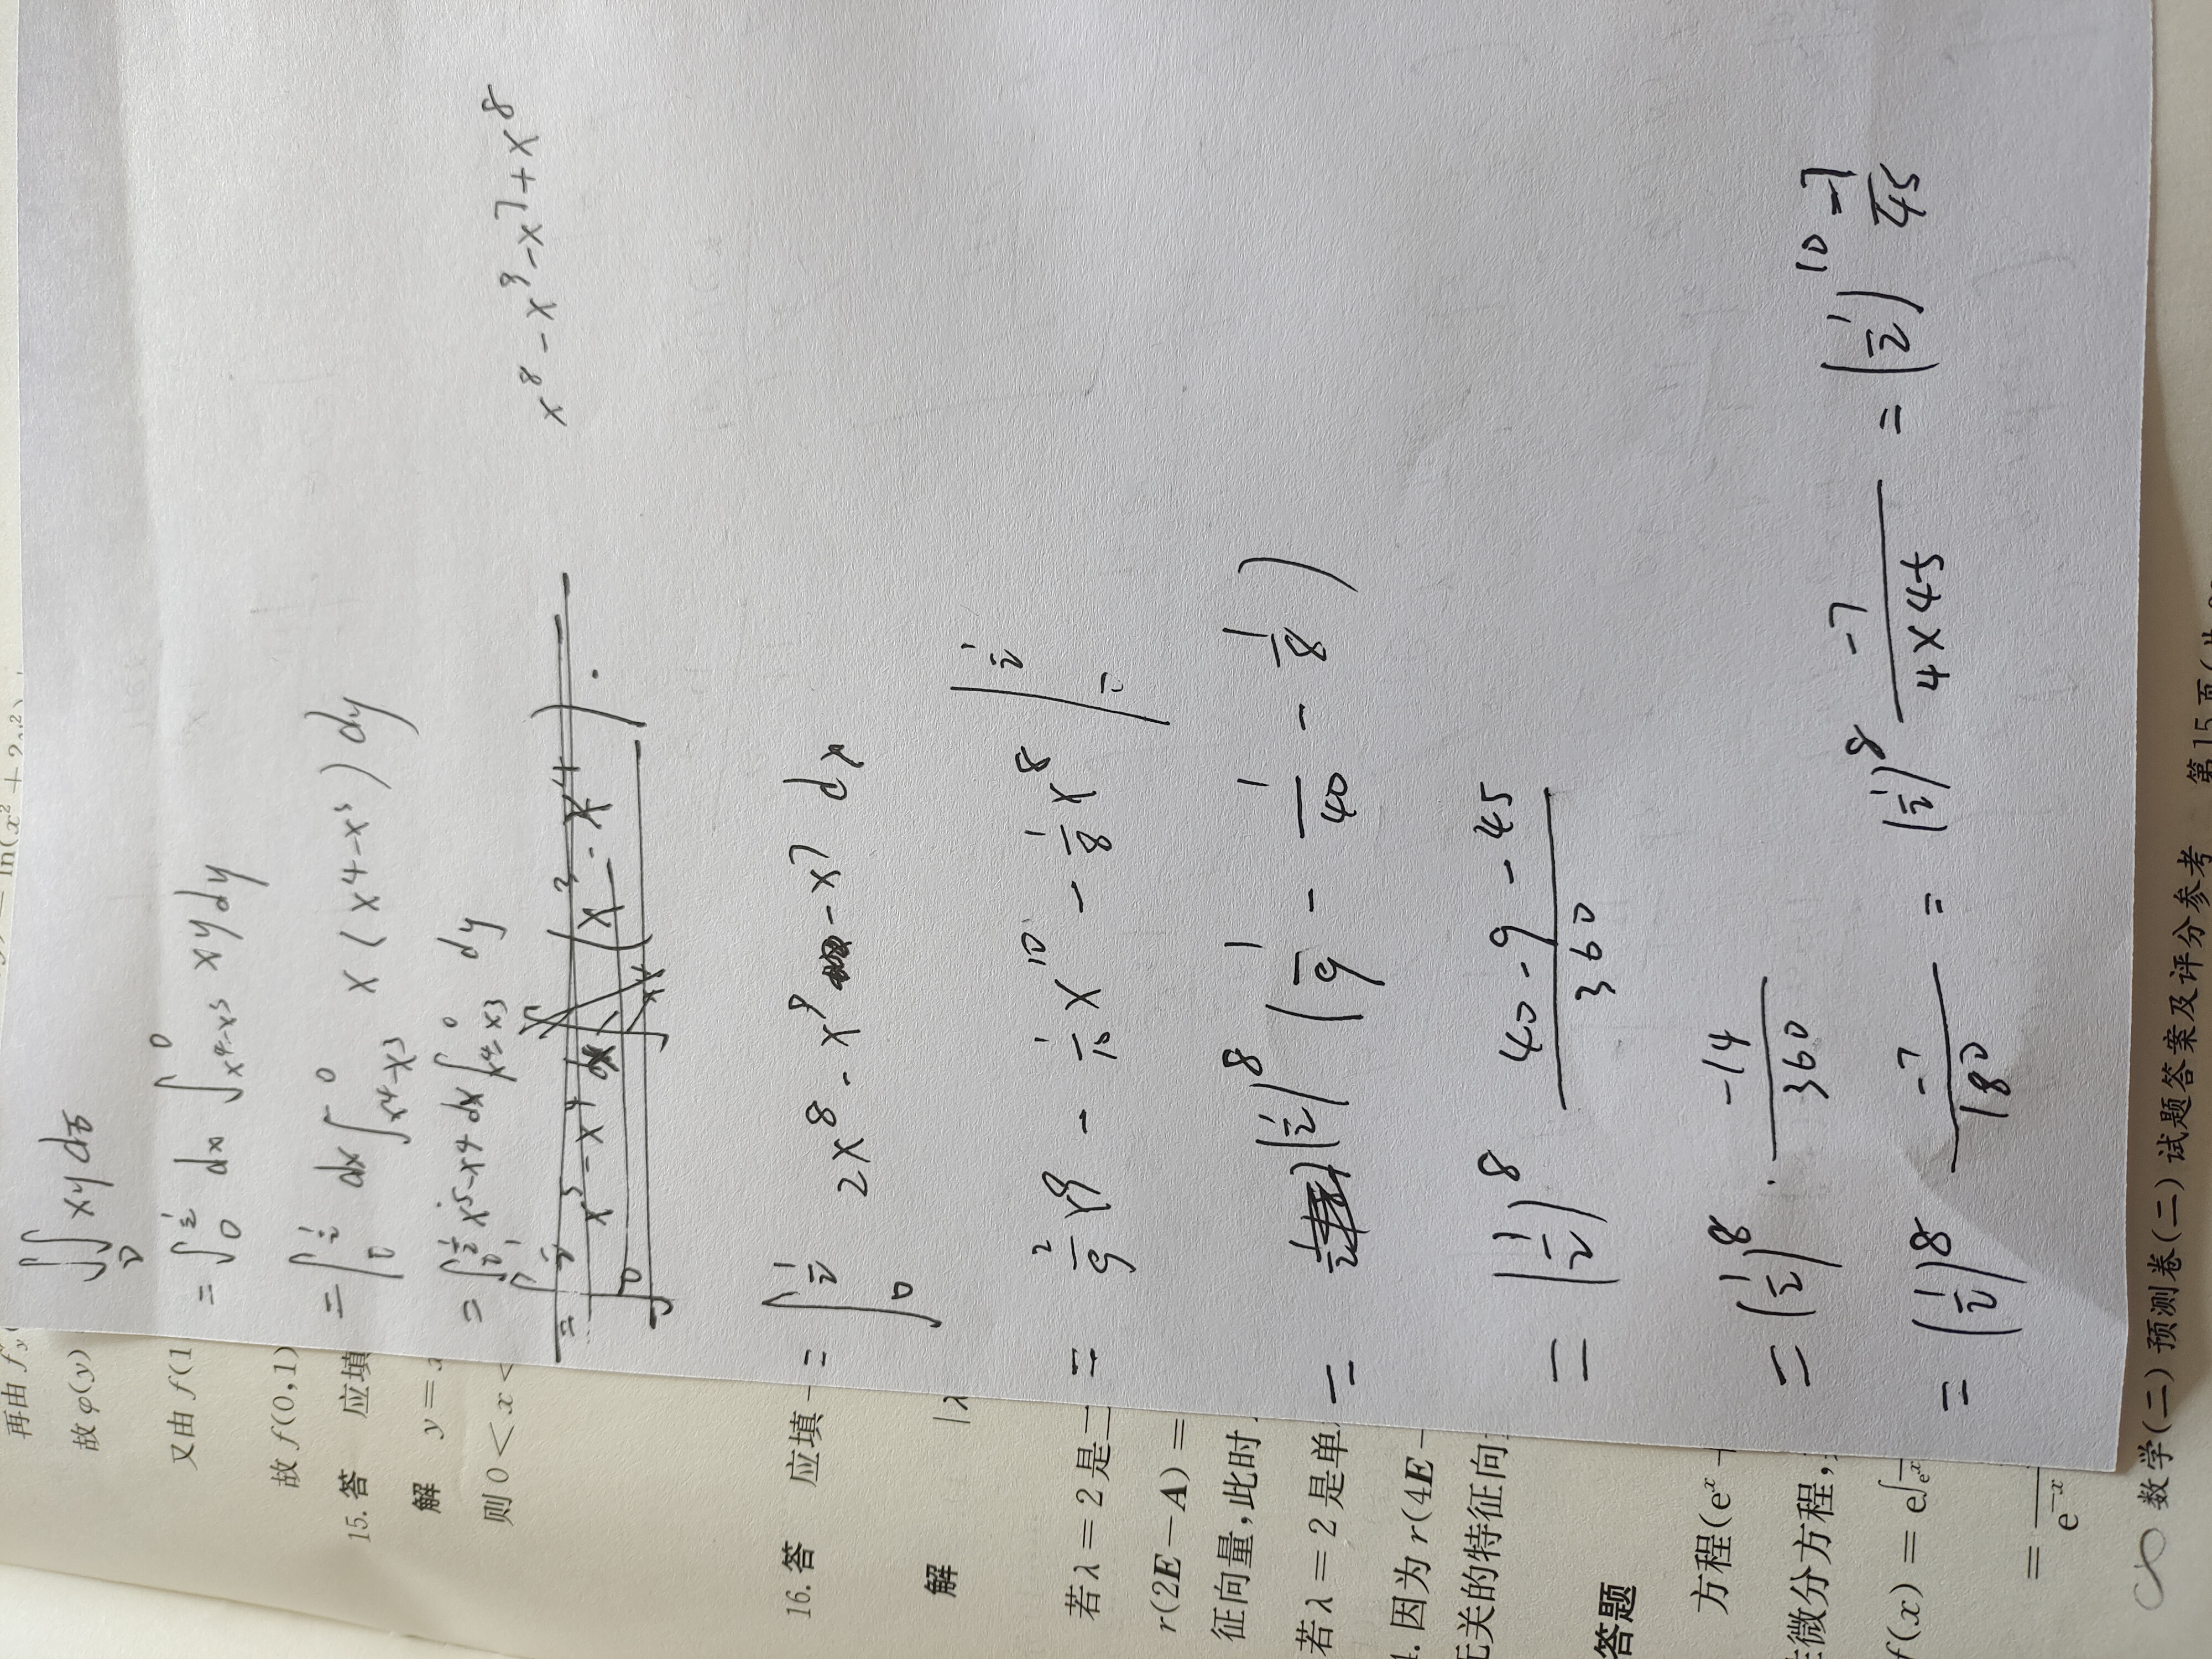 ∬_D xy dσ
= ∫_0^{1/2} dx ∫_{x^4-x^3}^0 xy dy
= ∫_0^{1/2} dx ∫_{x^4-x^3}^0 x(x^4-x^3) dy
= ∫_0^{1/2} x^5-x^4 dx ∫_{x^4-x^3}^0 dy
x^8-x^9-x^7+x^8
= ∫_0^{1/2} 2x^8-x^9-x^7 dx
= 2/9 x^9 - 1/10 x^10 - 1/8 x^8 |_0^{1/2}
= (1/2)^8 (1/9 - 1/40 - 1/8)
= (1/2)^8 (40-9-45)/360
= (1/2)^8 · -14/360
= (1/2)^8 -7/180 = (1/2)^8 -7/(4×45) = (1/2)^10 -7/45
再由 f
故 φ(y)
又由 f(1
故 f(0,1)
15. 答 应填
解 y=
则 0<x<
16. 答 应填
解 |λ
若 λ=2 是二
r(2E-A)=
征向量,此时
若 λ=2 是单
因为 r(4E-
无关的特征向
答题
方程(e^x
微分方程,
f(x)=e^∫
=
e^{-x}
数学(二)预测卷(二)试题答案及评分参考 第15页(共